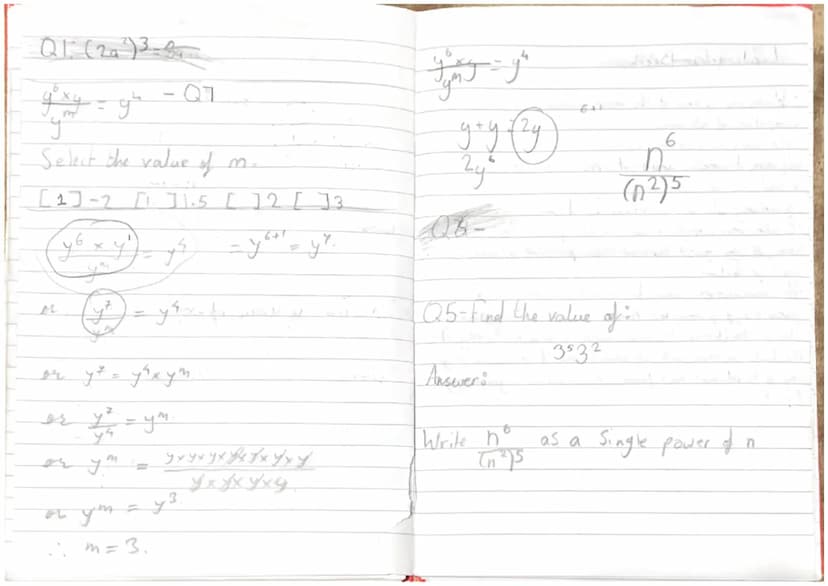 Q1: (2a²)³ =
y⁶ × y / yᵐ = y⁴ - Q7
Select the value of m.
[1] -2 [1 ] 1.5 [ ] 2 [ ] 3
y⁶ × y¹ / yᵐ = y⁴ = y⁶⁺¹ = y⁷.
or y⁷ / yᵐ = y⁴
or y⁷ = y⁴ × yᵐ
or y⁷ / y⁴ = yᵐ
or yᵐ = y×y×y×y×y×y×y / y×y×y×y
or yᵐ = y³
∴ m = 3.
y⁶ × y / yᵐ = y⁴
6+1
y + y = 2y
2y⁶
n⁶ / (n²)⁵
Q8 -
Q5 - Find the value of:
3⁵3²
Answer:
Write n⁶ / (n²)⁵ as a single power of n